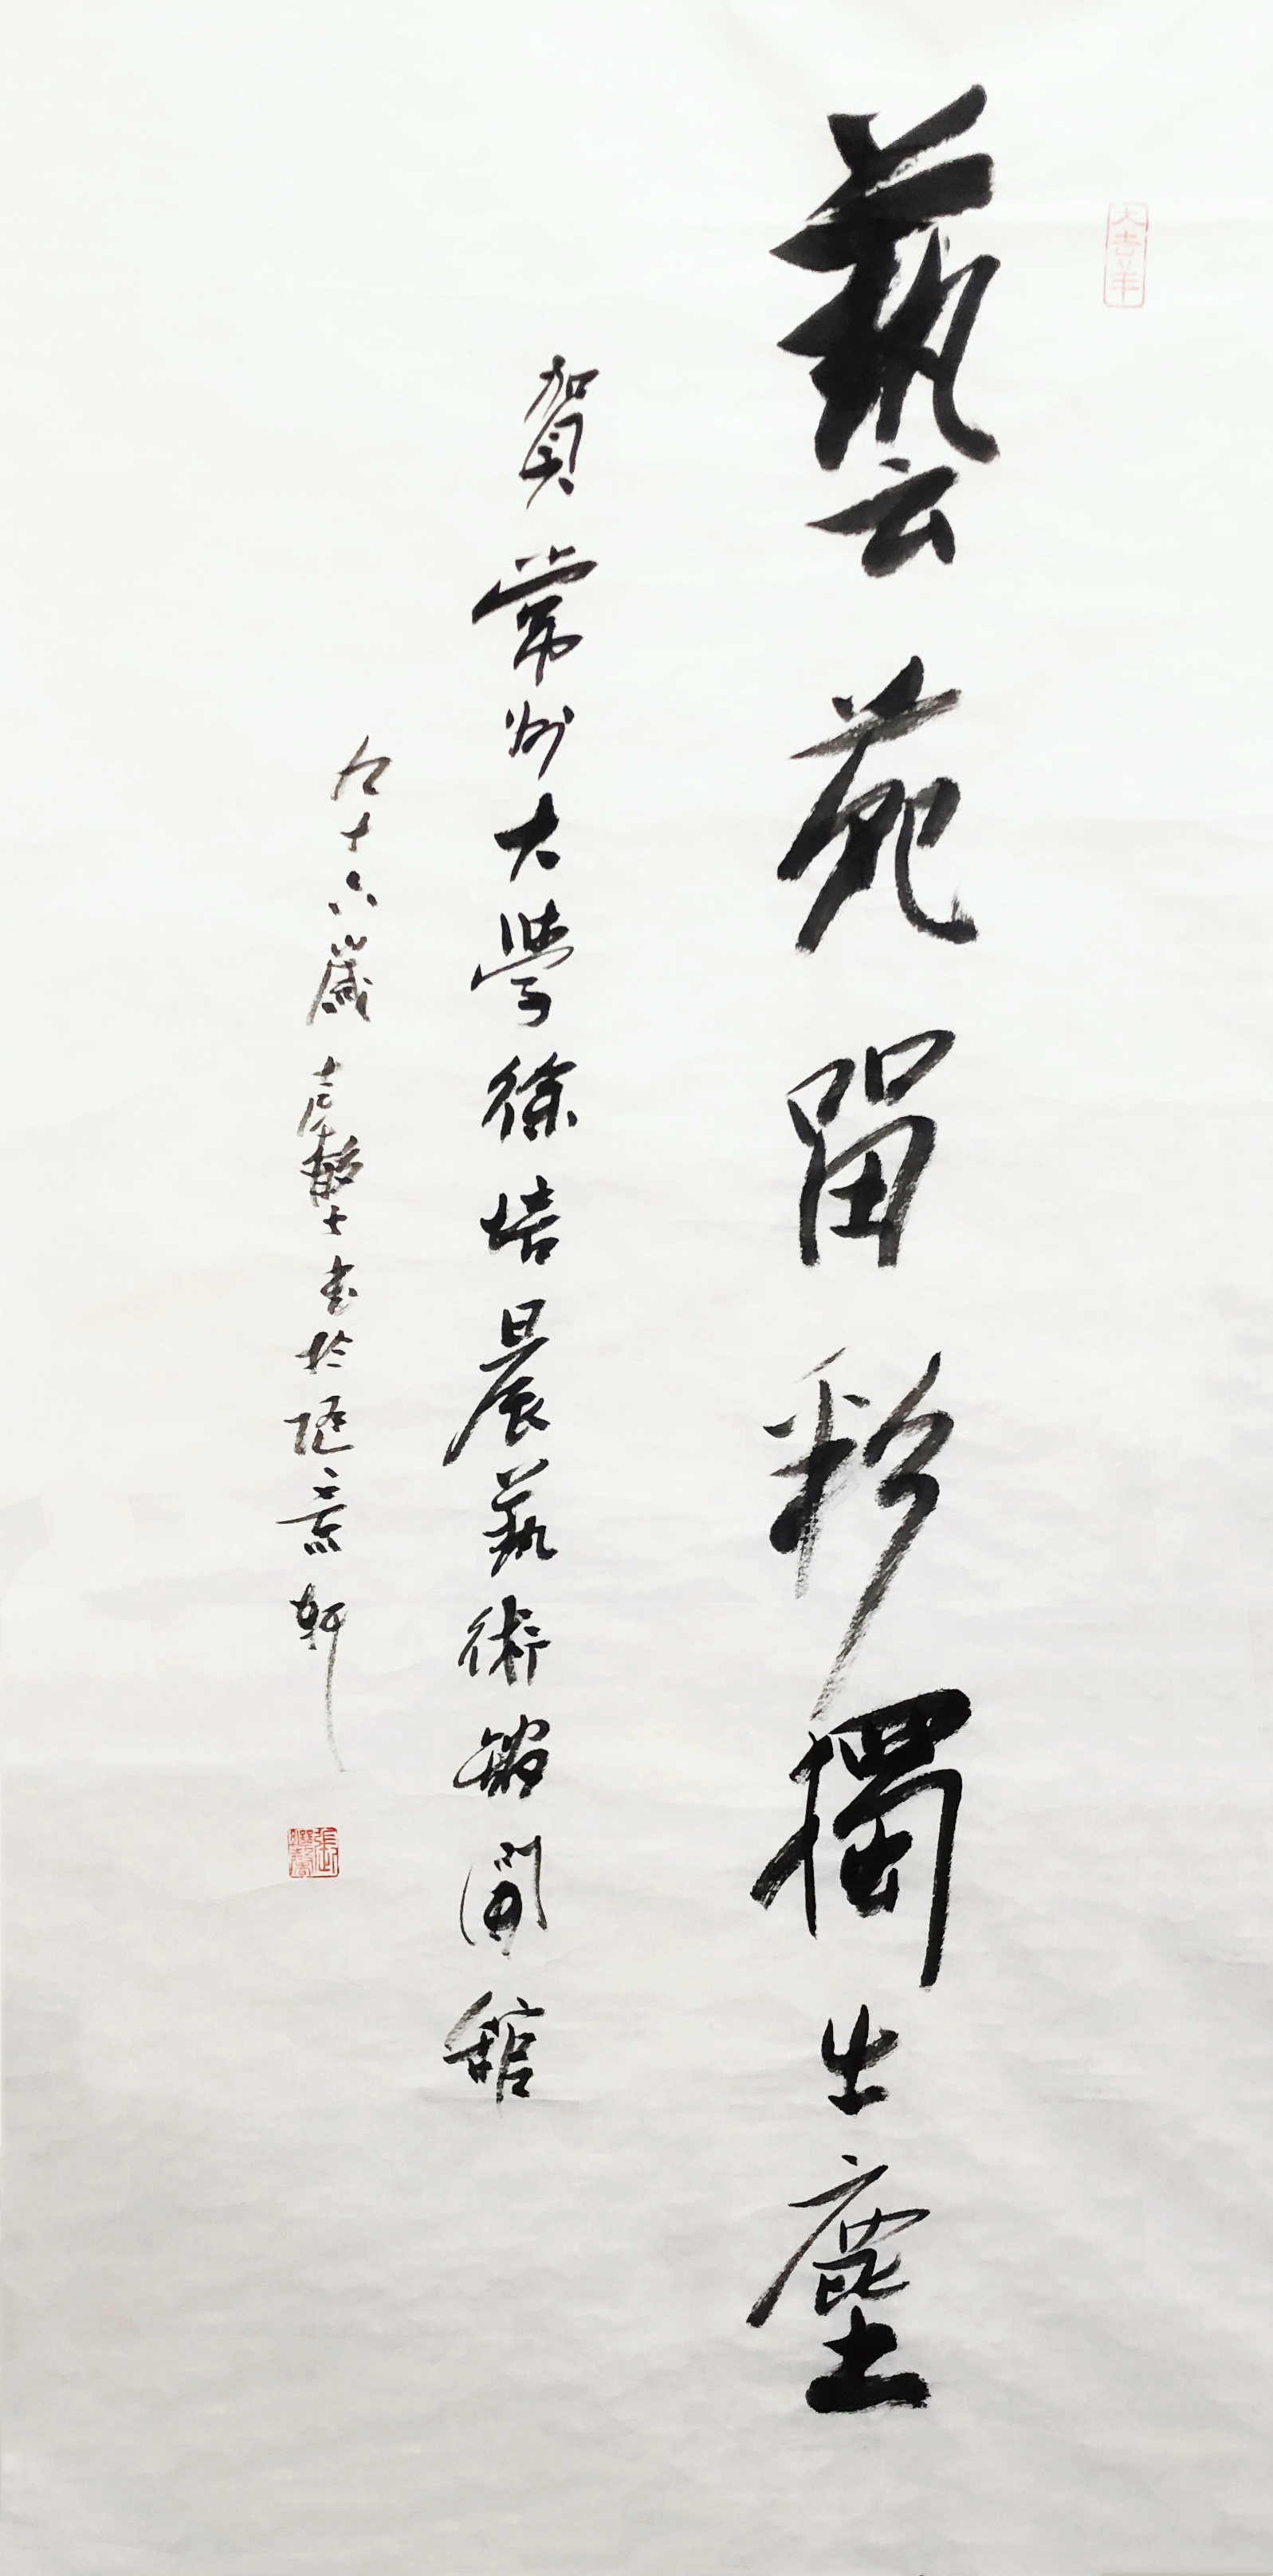 大吉羊
藝苑留彩獨出塵
賀常州大學徐培晨藝術館開館
九十六歲書於隨意軒
張繼馨